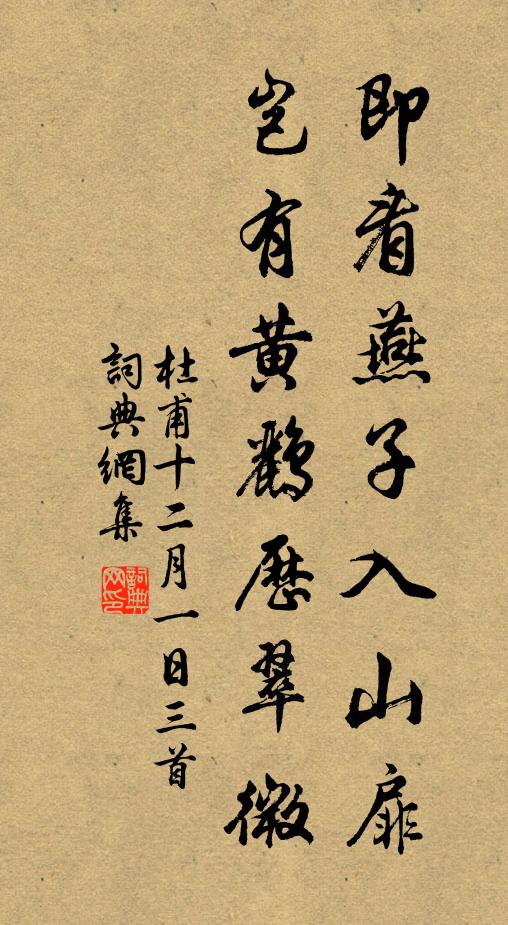 即看燕子入山扉
豈有黃鸝歷翠微
杜甫十二月一日三首
詞典網集
詞典网印